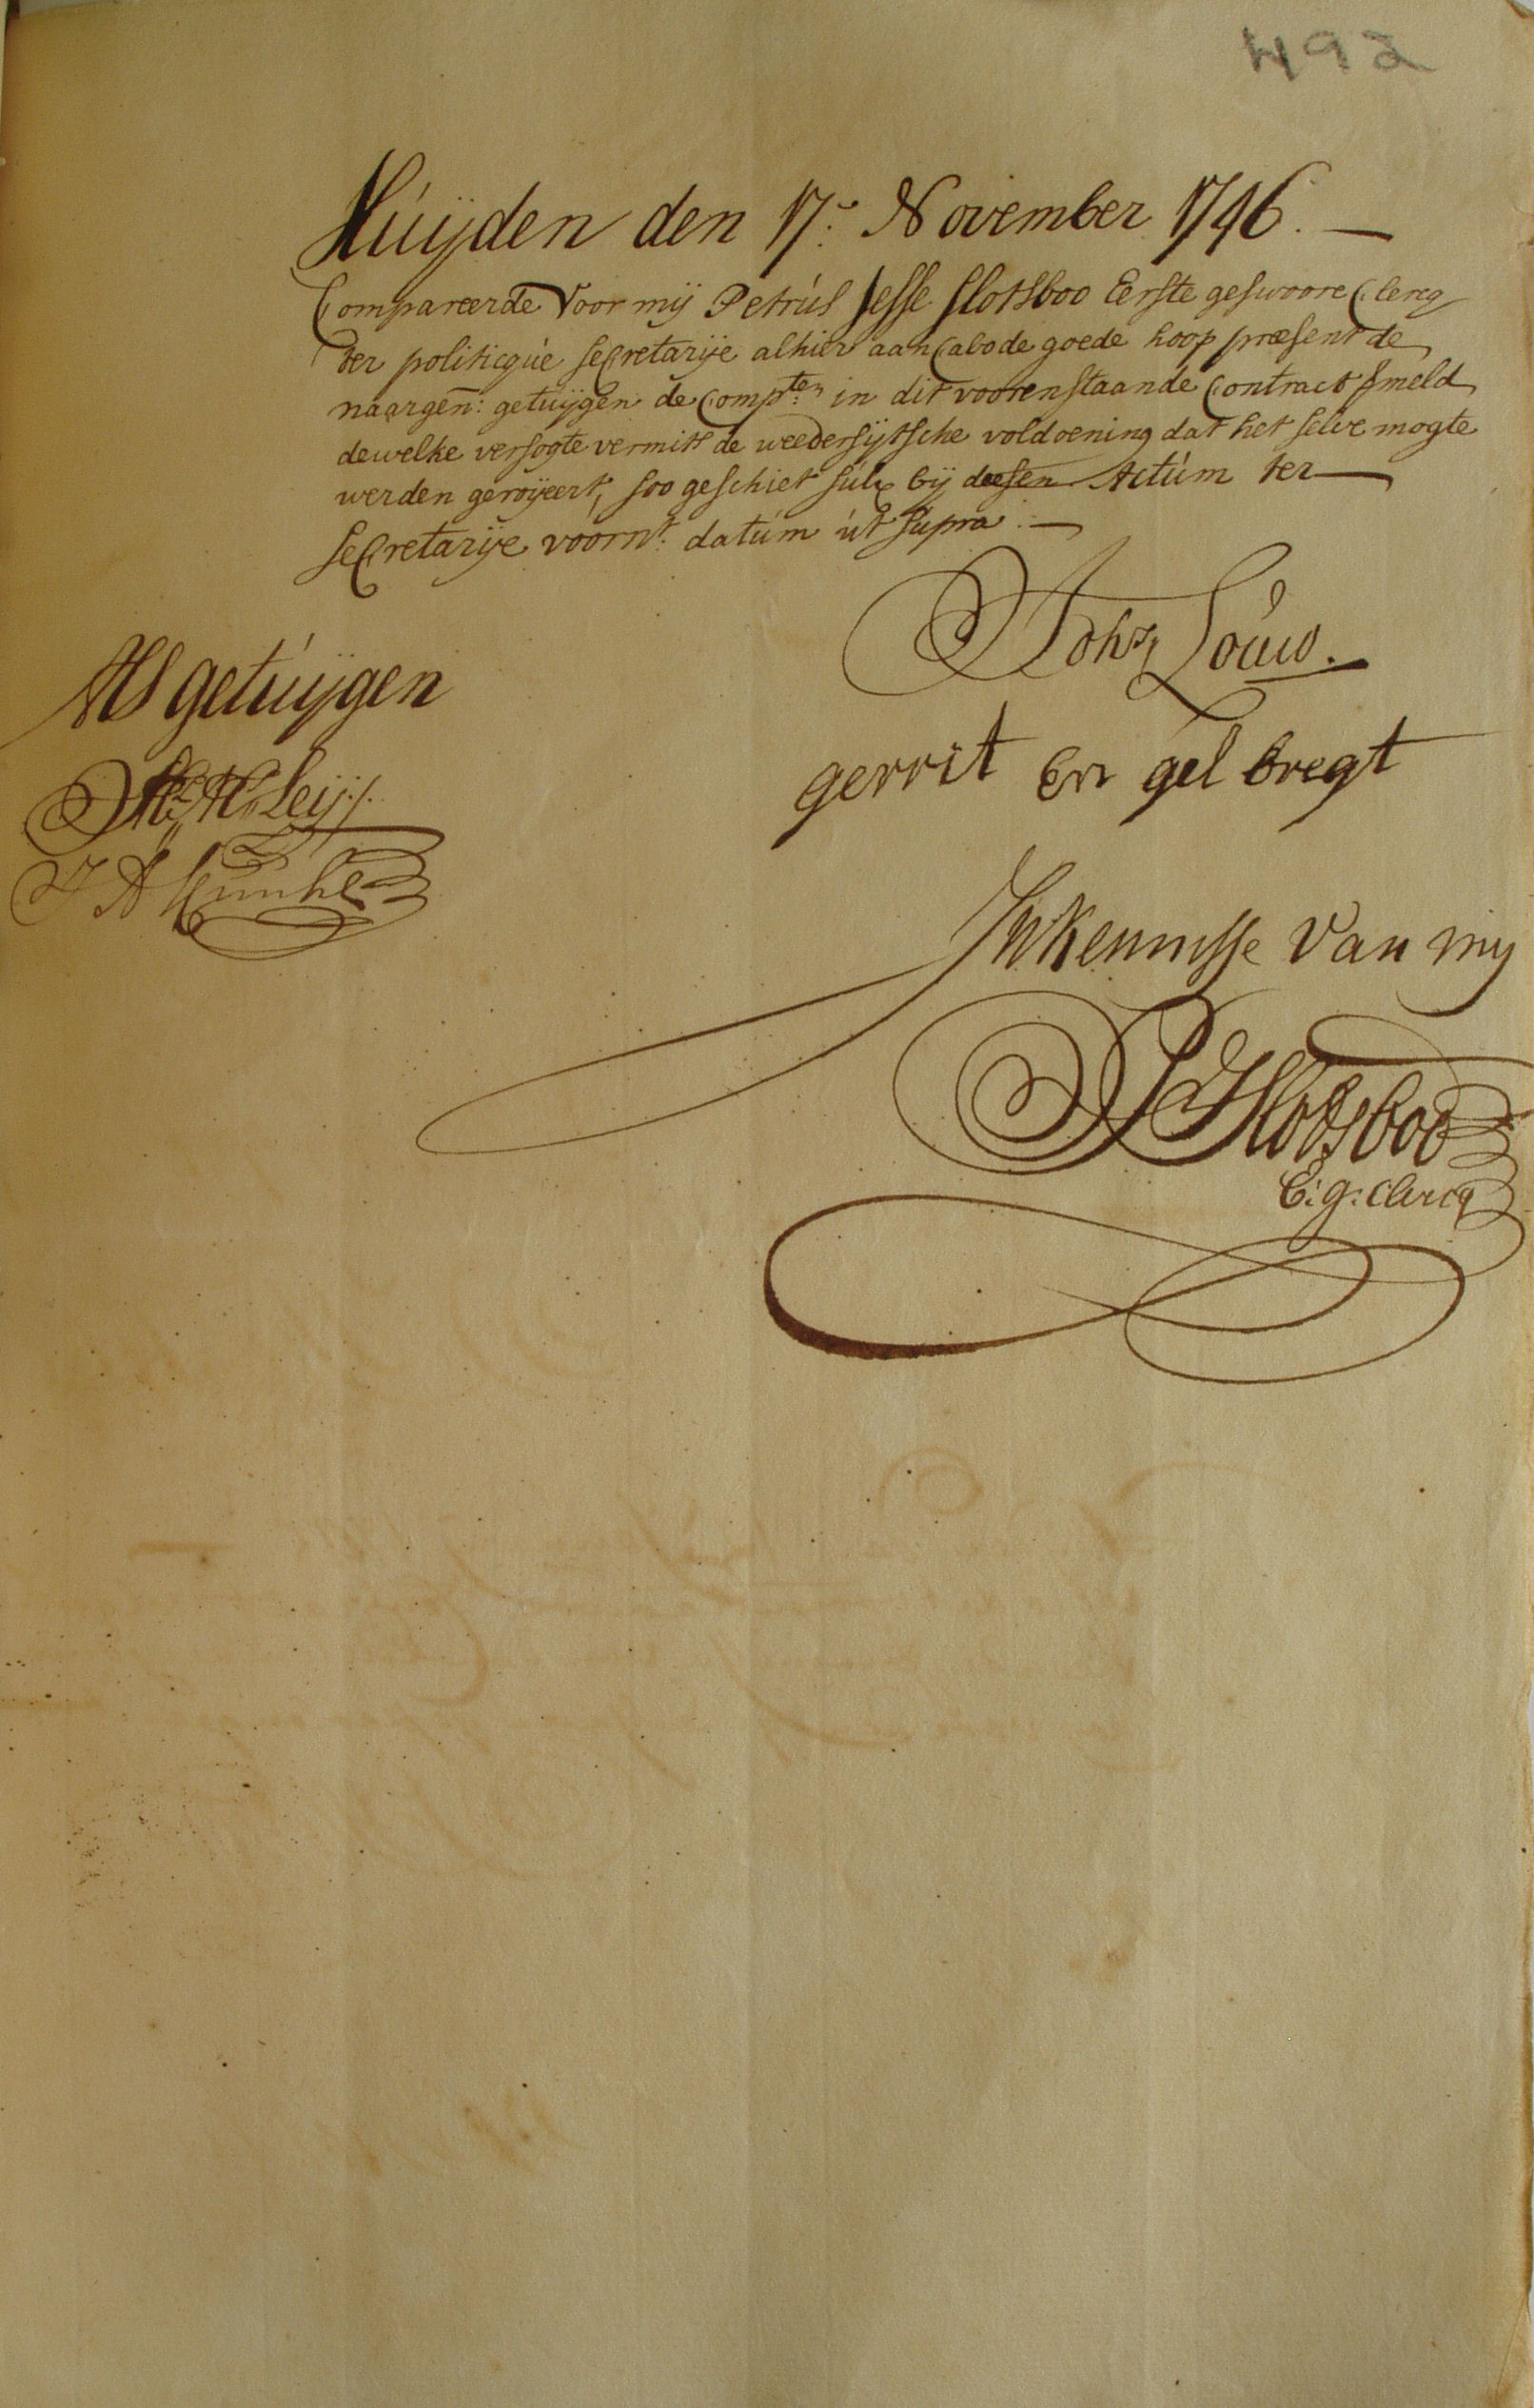 492
Huijden den 17:e November 1746. —
Compareerde Voor mij Petrus Jesse Slotsboo Eerste geswoore Clercq
der politicque secretarije alhier aan Cabo de goede hoop præsent de
naargen: getuijgen de Compten in dit voorenstaande Contract gemeld
dewelke versogte vermits de weedersijtsche voldoening dat het selve mogte
werden geroijeert, soo geschiet sulx bij deesen Actum ter
secretarije voorn:t datum ut supra:—
Johs Louw.
Als getuijgen
gerrit En gel bregt
Leij
J A
Inkennisse Van mij
P J Slotsboo
E: g: Clercq